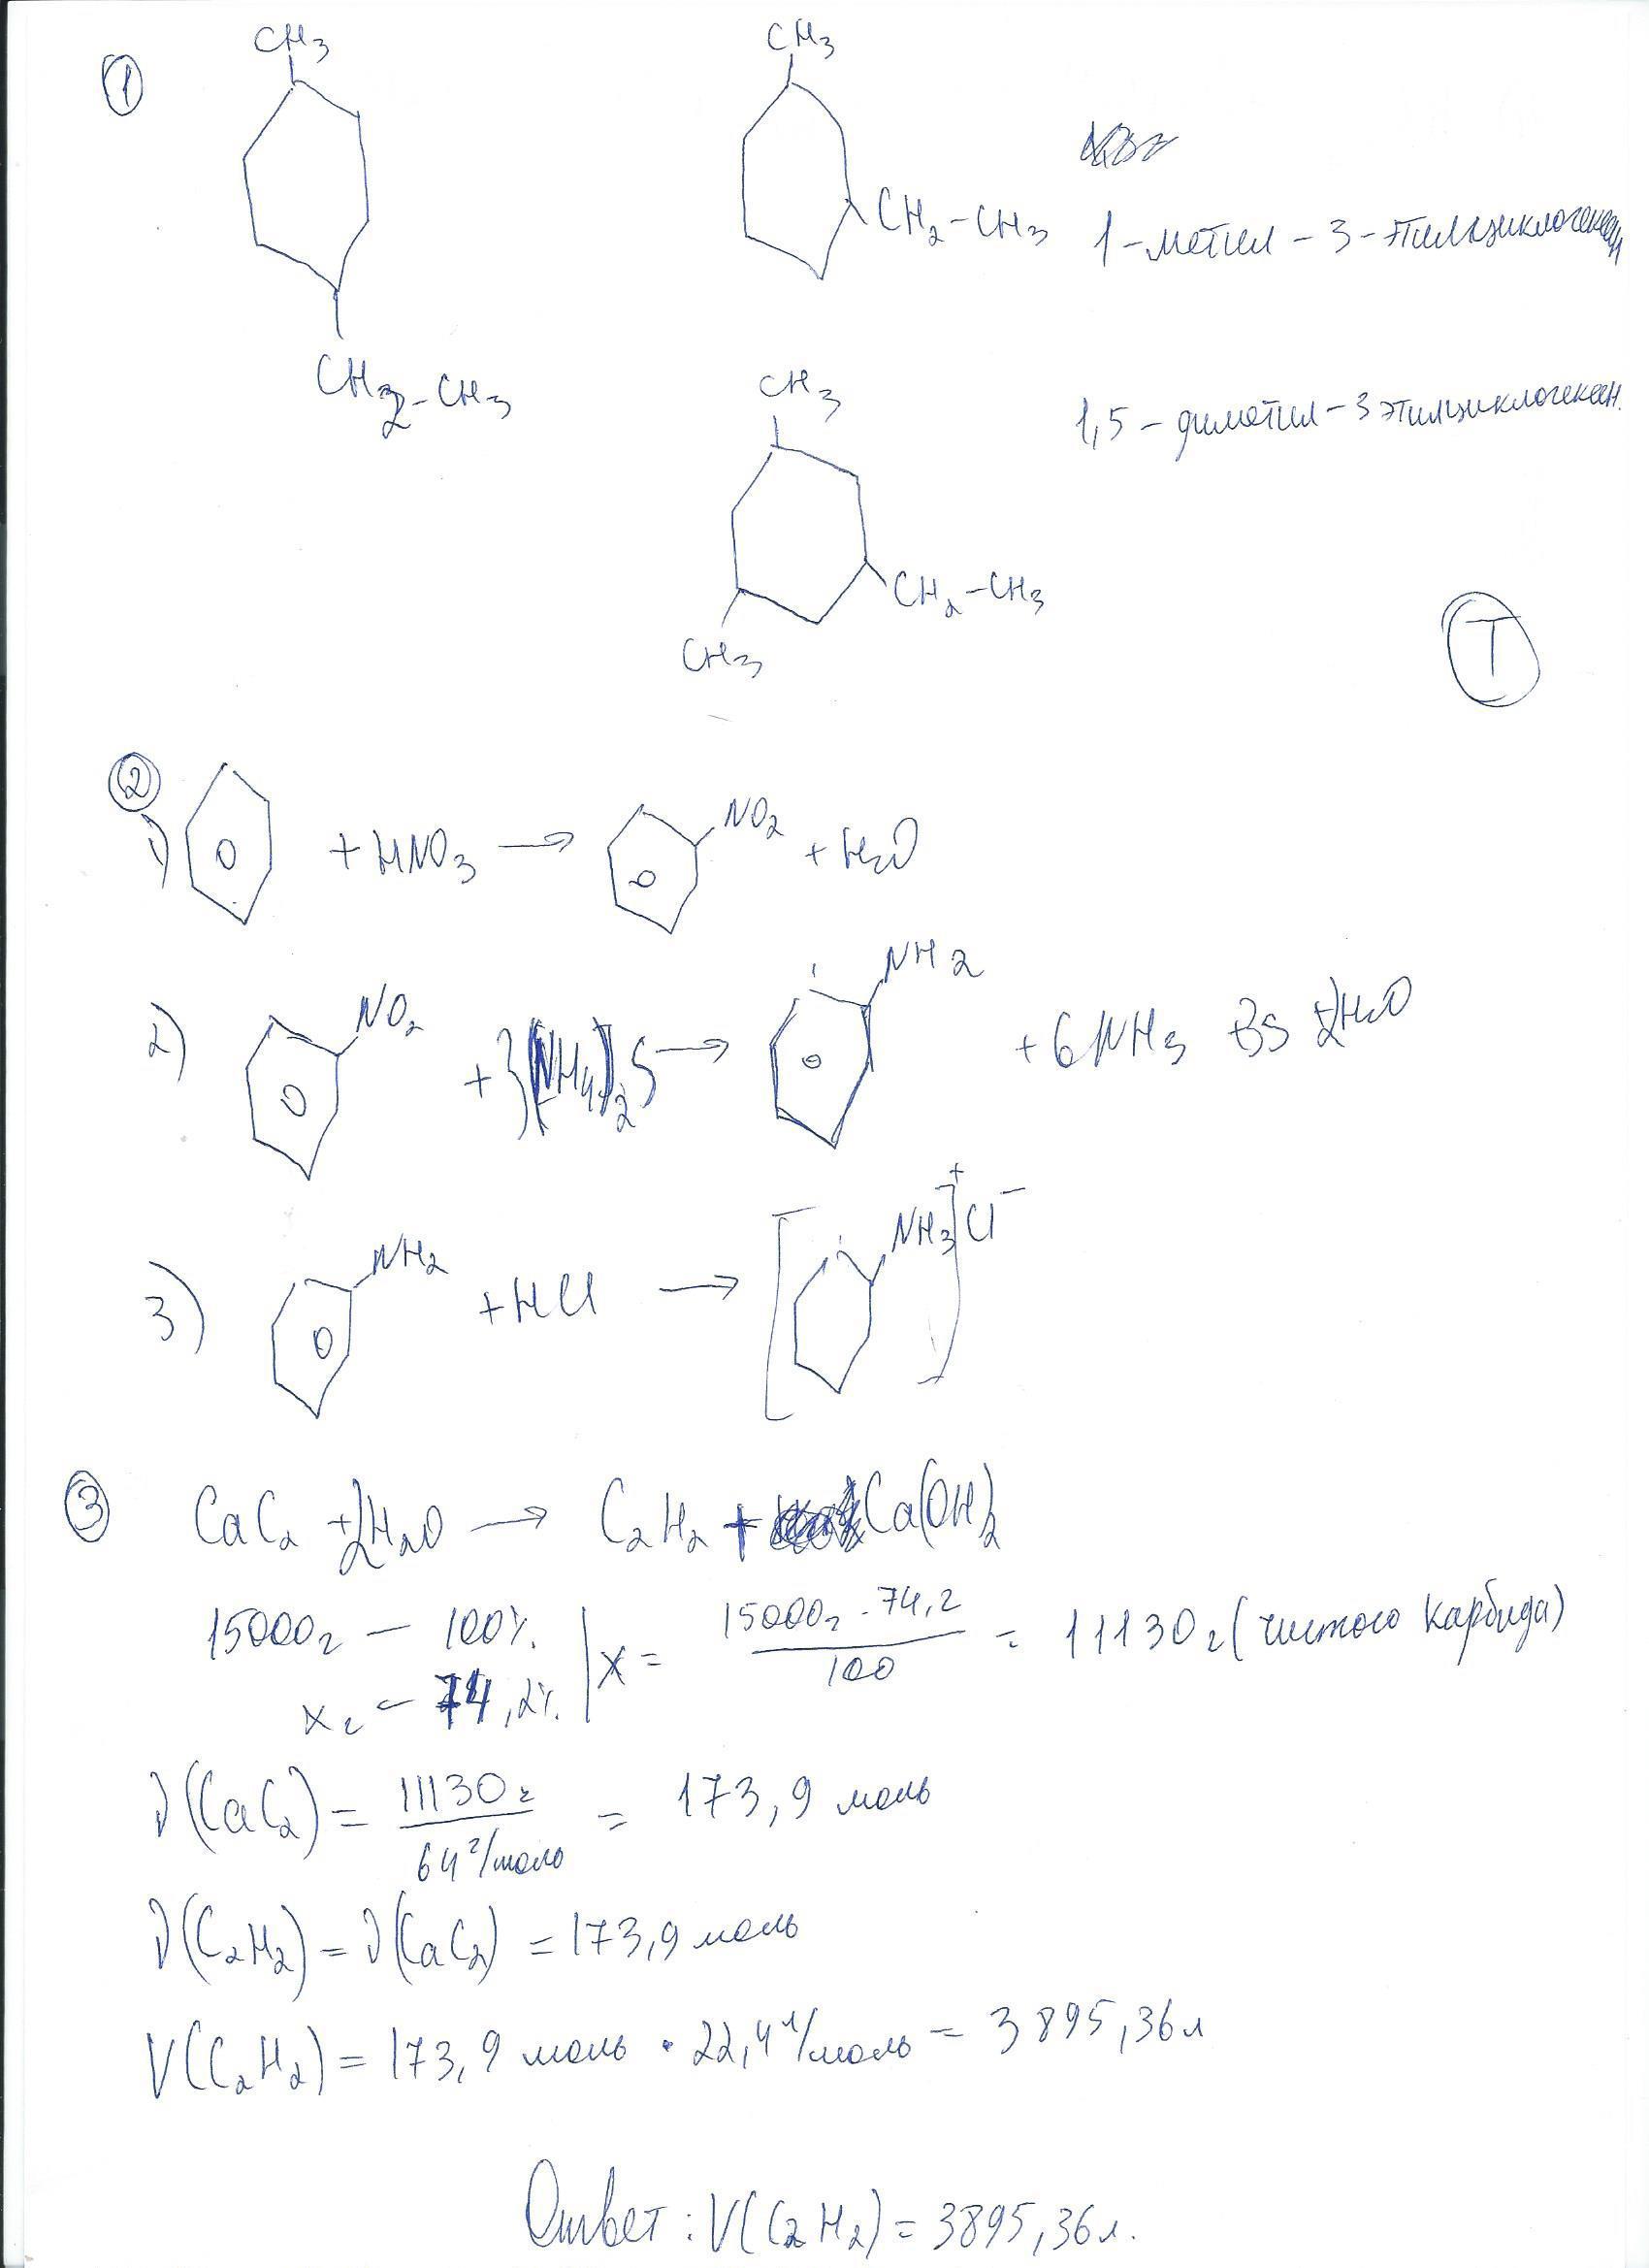 ①
CH3
CH2-CH3
CH3
CH2-CH3
1-метил-3-этилциклогексан
CH3
CH2-CH3
CH3
1,5-диметил-3 этилциклогексан.
T
②
1) + HNO3 → NO2 + H2O
2) NO2 + 3(NH4)2S → NH2 + 6NH3 +3S +2H2O
3) NH2 + HCl → [NH3]+Cl−
③ CaC2 + 2H2O → C2H2 + Ca(OH)2
15000г — 100%
x г — 74,2%
x = 15000г · 74,2 / 100 = 11130 г (чистого карбида)
ν(CaC2) = 11130 г / 64 г/моль = 173,9 моль
ν(C2H2) = ν(CaC2) = 173,9 моль
V(C2H2) = 173,9 моль · 22,4 л/моль = 3895,36 л
Ответ: V(C2H2) = 3895,36 л.